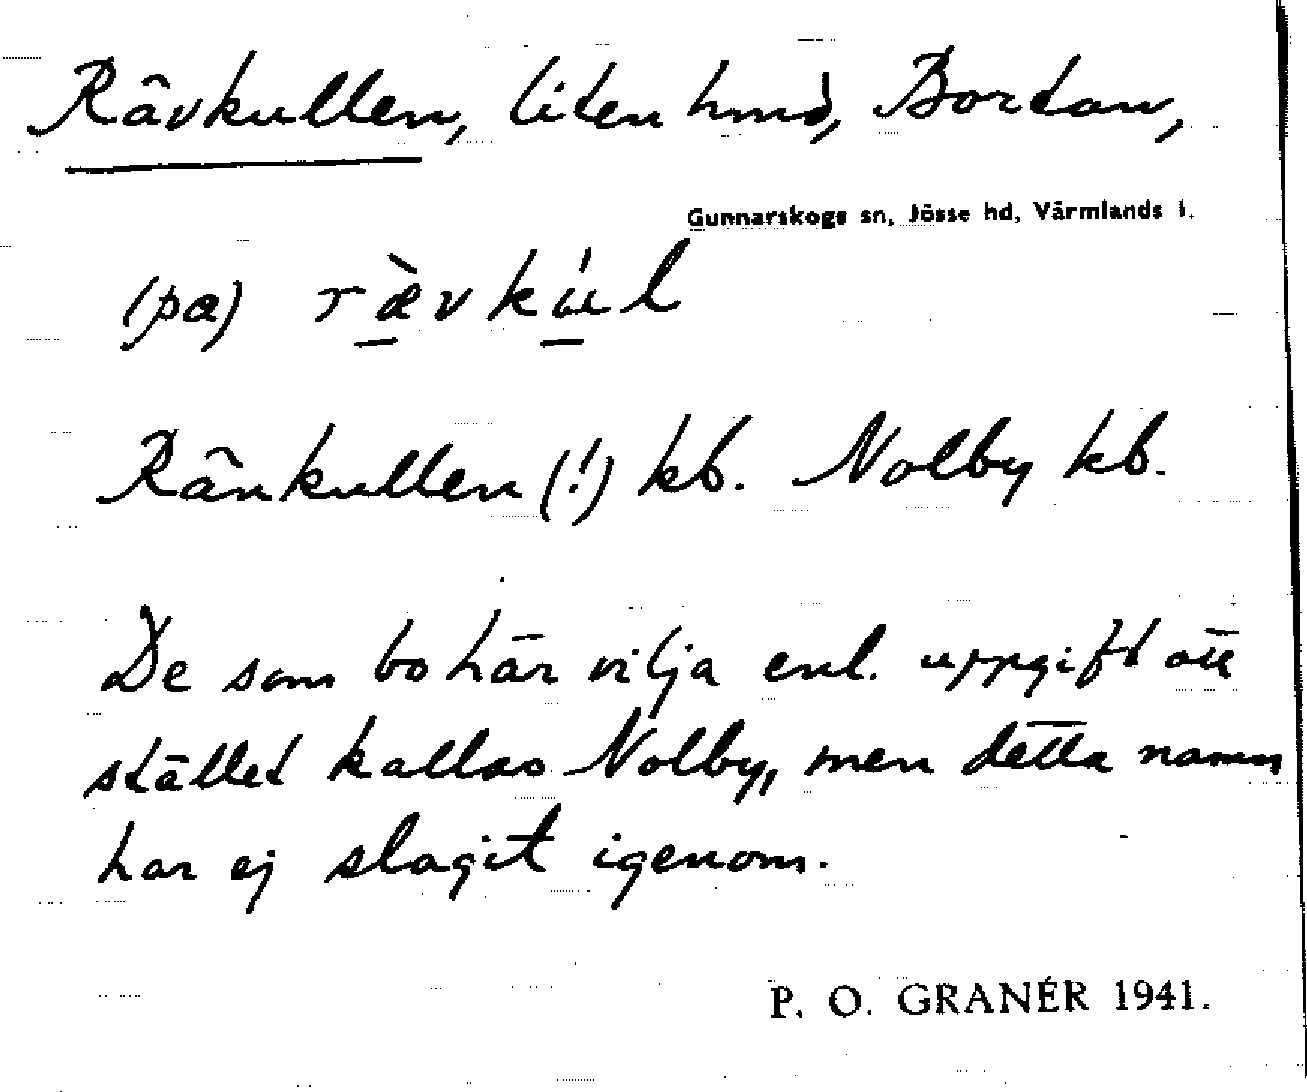 Rävkullen, liten hmd, Bortan,
Gunnarskogs sn, Jösse hd, Värmlands l.
(pa) ræ̀vkúl
Ränkullen (!) kb. Nolby kb.
De som bo här vilja enl. uppgift att
stället kallas Nolby, men detta namn
har ej slagit igenom.
P. O. GRANÉR 1941.